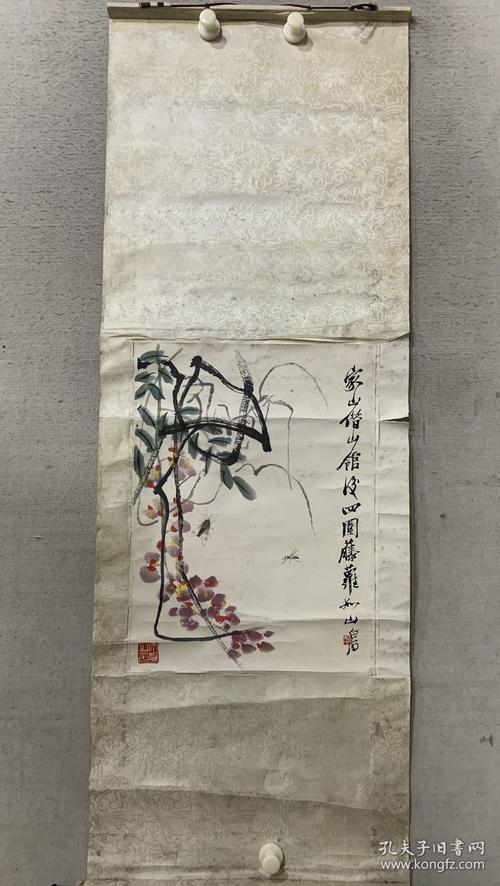 家山借山館後四圍藤蘿如山
孔夫子旧书网
www.kongfz.com